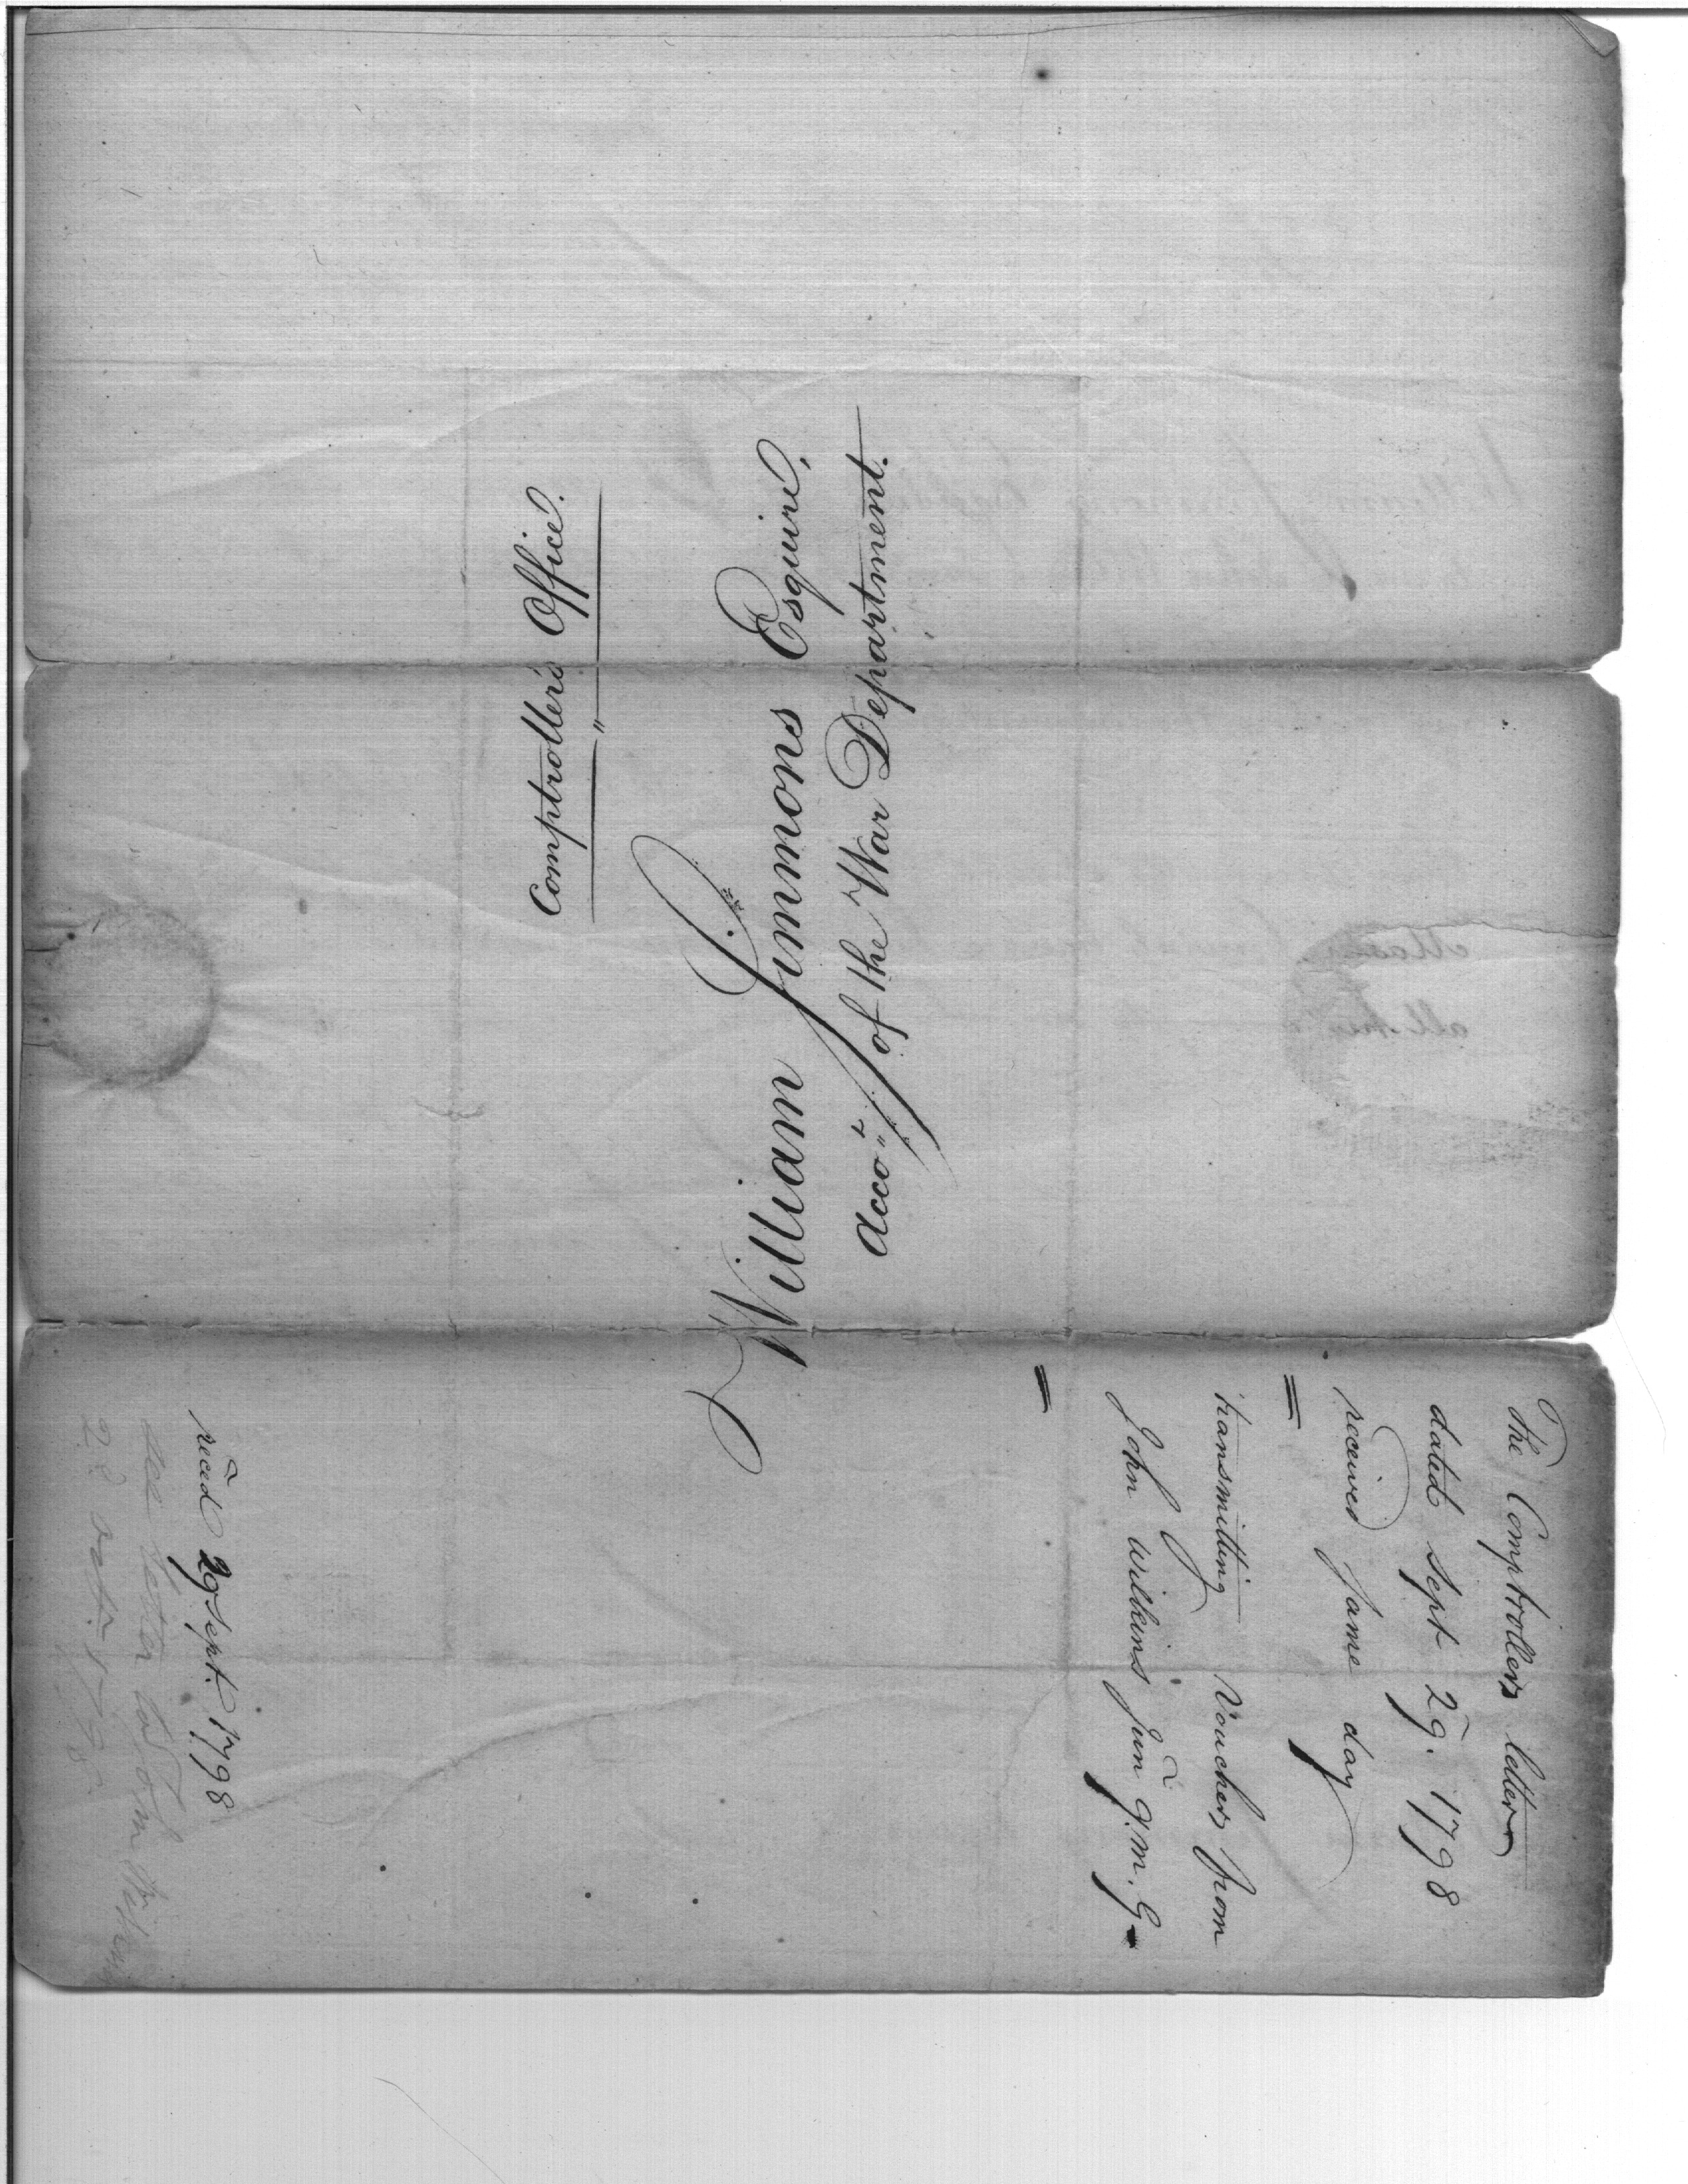 Comptroller's Office.
William Simmons Esquire,
Acco.t of the War Department.
The Comptrollers letter
dated Sept 29. 1798
received Same day
transmitting Vouchers from
John Wilkins Junr Q. M. G
recēd 29 Sept. 1798
see letter to John Wilkins
22 oct. 1798